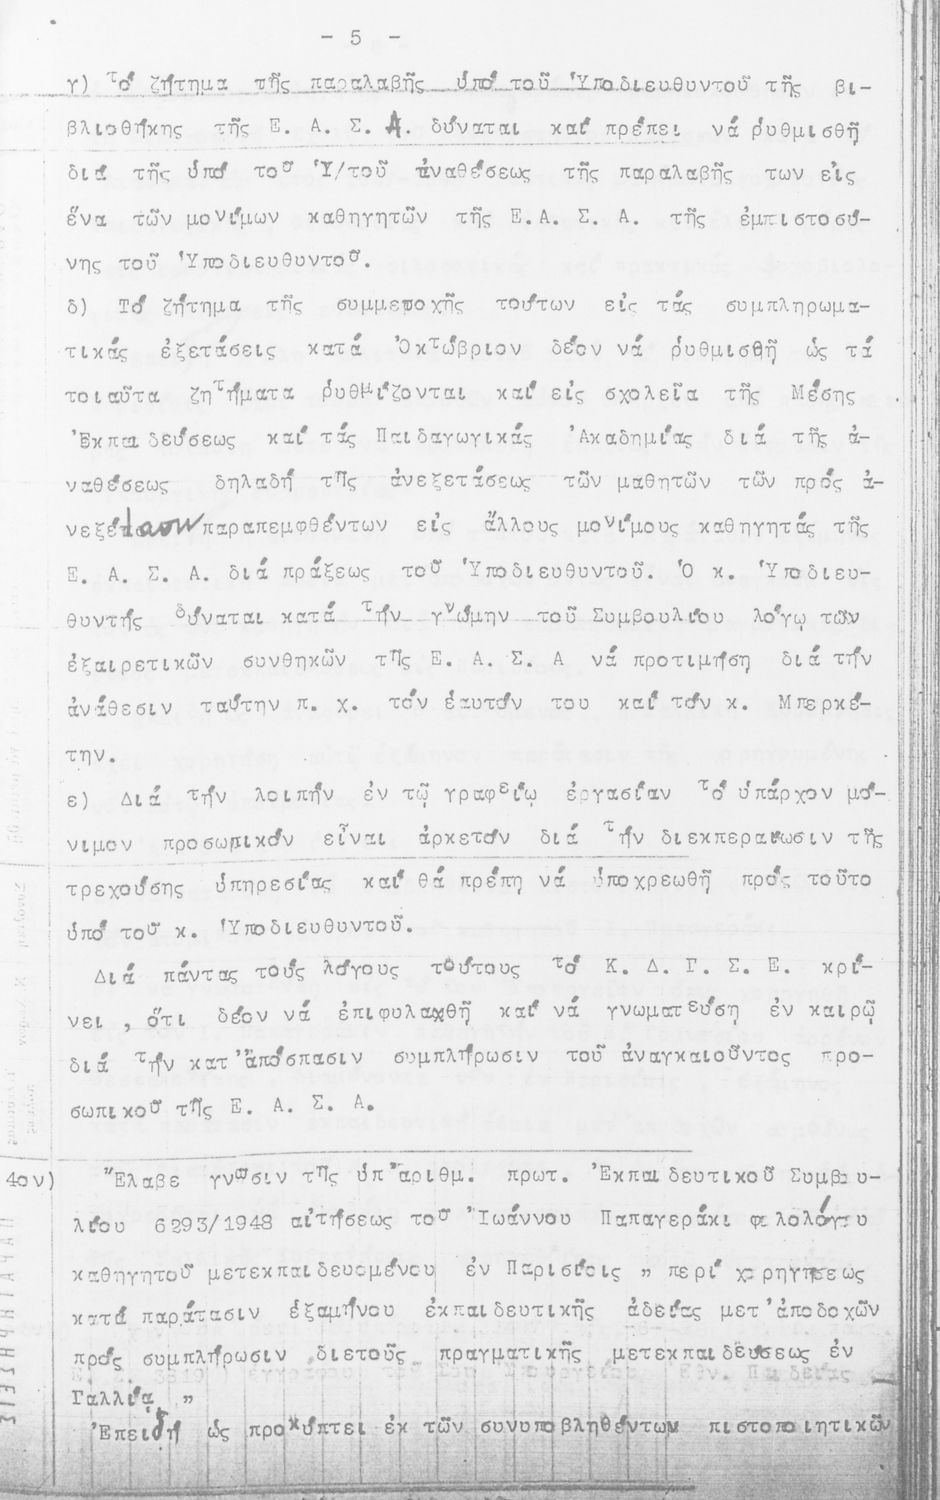 - 5 -
γ) Τό ζήτημα τῆς παραλαβῆς ὑπό τοῦ Ὑποδιευθυντοῦ τῆς βι-
βλιοθήκης τῆς Ε. Α. Σ. Α. δύναται καί πρέπει νά ῥυθμισθῇ
διά τῆς ὑπό τοῦ Ὑ/τοῦ ἀναθέσεως τῆς παραλαβῆς των εἰς
ἕνα τῶν μονίμων καθηγητῶν τῆς Ε.Α.Σ.Α. τῆς ἐμπιστοσύ-
νης τοῦ Ὑποδιευθυντοῦ.
δ) Τό ζήτημα τῆς συμμετοχῆς τούτων εἰς τάς συμπληρωμα-
τικάς ἐξετάσεις κατά Ὀκτώβριον δέον νά ῥυθμισθῇ ὡς τά
τοιαῦτα ζητήματα ῥυθμίζονται καί εἰς σχολεῖα τῆς Μέσης
Ἐκπαιδεύσεως καί τάς Παιδαγωγικάς Ἀκαδημίας διά τῆς ἀ-
ναθέσεως δηλαδή τῆς ἀνεξετάσεως τῶν μαθητῶν τῶν πρός ἀ-
νεξέτασιν παραπεμφθέντων εἰς ἄλλους μονίμους καθηγητάς τῆς
Ε. Α. Σ. Α. διά πράξεως τοῦ Ὑποδιευθυντοῦ. Ὁ κ. Ὑποδιευ-
θυντής δύναται κατά τήν γνώμην τοῦ Συμβουλίου λόγῳ τῶν
ἐξαιρετικῶν συνθηκῶν τῆς Ε. Α. Σ. Α νά προτιμήσῃ διά τήν
ἀνάθεσιν ταύτην π. χ. τόν ἑαυτόν του καί τόν κ. Μπερκέ-
την.
ε) Διά τήν λοιπήν ἐν τῷ γραφείῳ ἐργασίαν τό ὑπάρχον μό-
νιμον προσωπικόν εἶναι ἀρκετόν διά τήν διεκπεραίωσιν τῆς
τρεχούσης ὑπηρεσίας καί θά πρέπῃ νά ὑποχρεωθῇ πρός τοῦτο
ὑπό τοῦ κ. Ὑποδιευθυντοῦ.
Διά πάντας τούς λόγους τούτους τό Κ. Δ. Γ. Σ. Ε. κρί-
νει , ὅτι δέον νά ἐπιφυλαχθῇ καί νά γνωματεύσῃ ἐν καιρῷ
διά τήν κατ'ἀπόσπασιν συμπλήρωσιν τοῦ ἀναγκαιοῦντος προ-
σωπικοῦ τῆς Ε. Α. Σ. Α.
4ον) Ἔλαβε γνῶσιν τῆς ὑπ'ἀριθμ. πρωτ. Ἐκπαιδευτικοῦ Συμβου-
λίου 6293/1948 αἰτήσεως τοῦ Ἰωάννου Παπαγεράκι φιλολόγου
καθηγητοῦ μετεκπαιδευομένου ἐν Παρισίοις " περί χορηγήσεως
κατά παράτασιν ἑξαμήνου ἐκπαιδευτικῆς ἀδείας μετ'ἀποδοχῶν
πρός συμπλήρωσιν διετοῦς πραγματικῆς μετεκπαιδεύσεως ἐν
Γαλλίᾳ "
Ἐπειδή ὡς προκύπτει ἐκ τῶν συνυποβληθέντων πιστοποιητικῶν